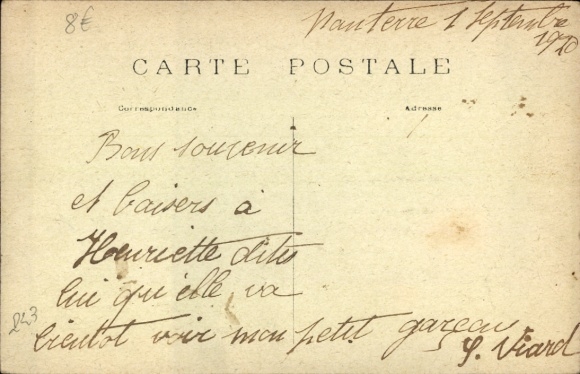 8€
Nanterre 1 Septembre
1920
CARTE POSTALE
Correspondance
Adresse
Bons souvenir
et baisers à
Henriette dites
lui qu'elle va
bientot voir mon petit garçon
Viard
243